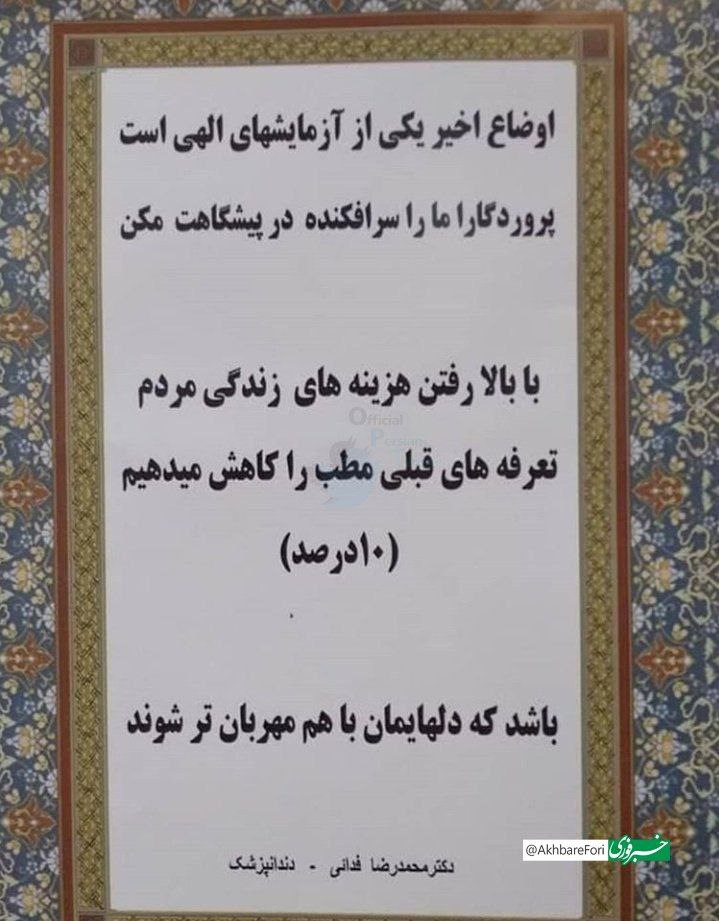 اوضاع اخیر یکی از آزمایشهای الهی است
پروردگارا ما را سرافکنده در پیشگاهت مکن
با بالا رفتن هزینه های زندگی مردم
تعرفه های قبلی مطب را کاهش میدهیم
(۱۰درصد)
باشد که دلهایمان با هم مهربان تر شوند
دکترمحمدرضا فدائی - دندانپزشک
Official
Persian
@AkhbareFori خبرفوری